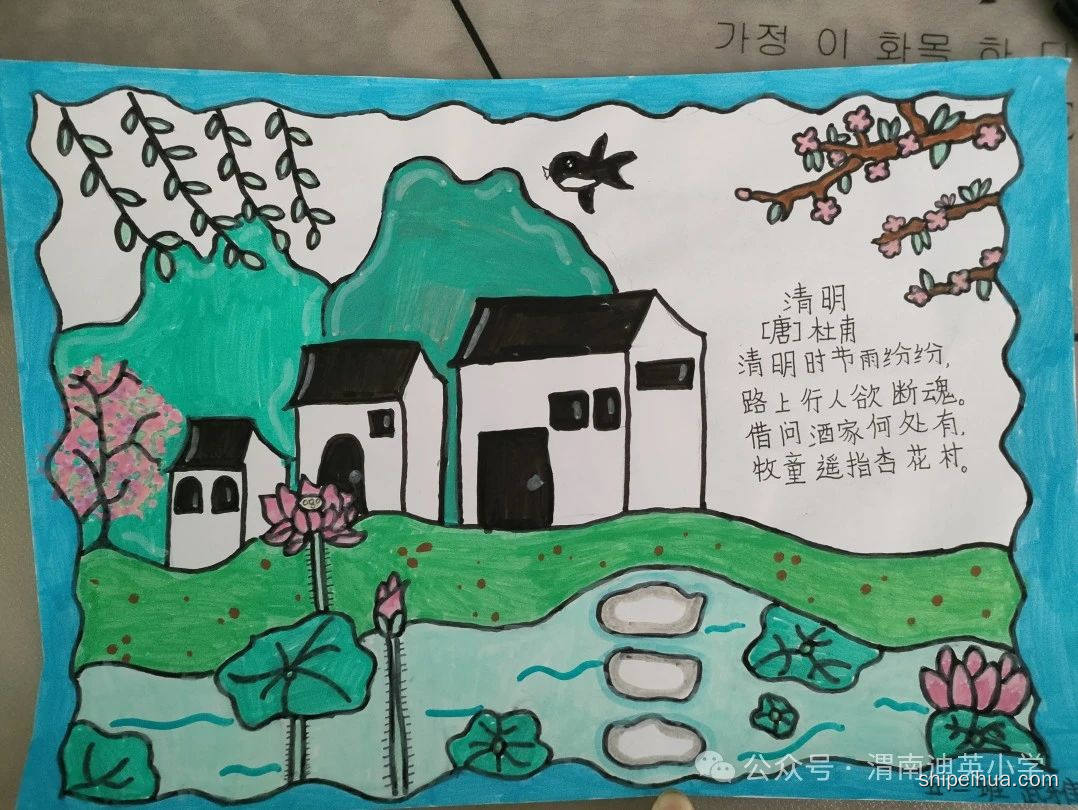 가정 이 화목 하
清明
[唐]杜甫
清明时节雨纷纷,
路上行人欲断魂。
借问酒家何处有,
牧童遥指杏花村。
公众号 · 渭南迪英小学
shipeihua.com